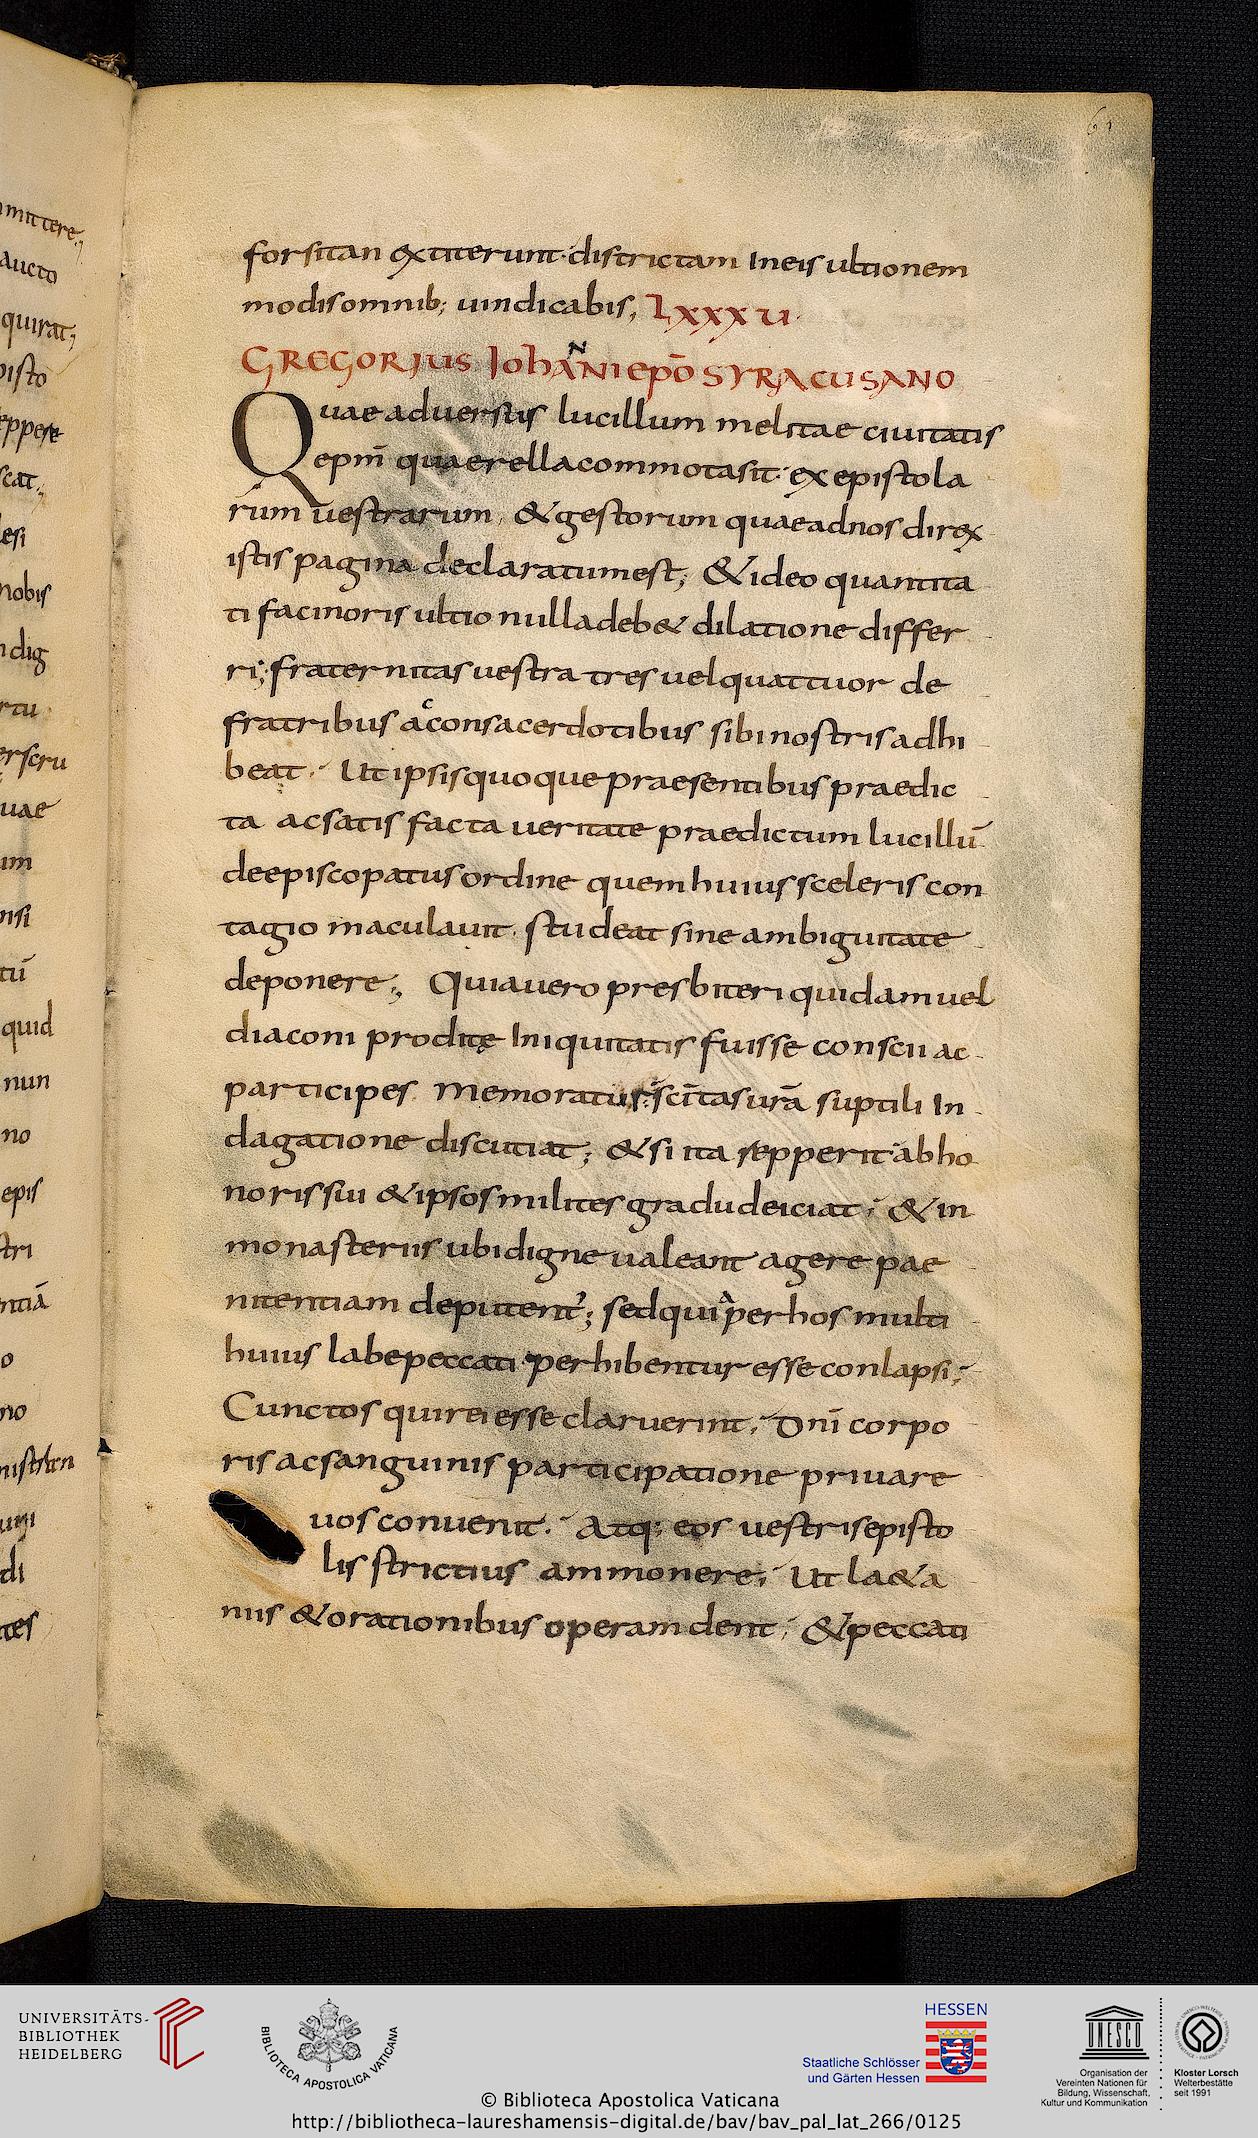 61
forsitan extiterunt. districtam In eis ultionem
modis omnib; uindicabis, LXXXV
GREGORIUS IohaNNI epō SYRACUSANO
Quae aduersus lucillum melitae ciuitatis
epm̄ quaerella commota sit. ex epistola
rum uestrarum, & gestorum quae ad nos direx
istis pagina declaratum est; & ideo quantita
ti facinoris ultio nulla deb& dilatione differ
ri; fraternitas uestra tres uel quattuor de
fratribus ac consacerdotibus sibi nostris adhi
beat. Ut ipsis quoque praesentibus praedic
ta ac satis facta ueritate praedictum lucillū
de episcopatus ordine quem huius sceleris con
tagio maculauit. studeat sine ambiguitate
deponere; Quia uero presbiteri quidam uel
diaconi proditę Iniquitatis fuisse conscii ac
participes memoratur; sc̄itas urā suptili In
dagatione discutiat; & si ita repperit ab ho
noris sui & ipsos milites gradu deiciat; & in
monasteriis ubi digne ualeant agere pae
nitentiam deputent'; sed quia per hos multi
huius labe peccati perhibentur esse conlapsi;
Cunctos qui rei esse claruerint, Dn̄i corpo
ris ac sanguinis participatione priuare
uos conuenit. Atq; eos uestris episto
lis strictius ammonere; Ut la&a
niis & orationibus operam dent; & peccati
mittere;
aucto
quirat;
pisto
epperit
scat;
esi
nobis
dig
rtu
erscru
uae
im
nsi
tū
quid
nun
no
epis
stri
ntiā
o
no
di
tes
UNIVERSITÄTS-
BIBLIOTHEK
HEIDELBERG
BIBLIOTECA APOSTOLICA VATICANA
HESSEN
Staatliche Schlösser
und Gärten Hessen
UNESCO
Organisation der
Vereinten Nationen für
Bildung, Wissenschaft,
Kultur und Kommunikation
Kloster Lorsch
Welterbestätte
seit 1991
© Biblioteca Apostolica Vaticana
http://bibliotheca-laureshamensis-digital.de/bav/bav_pal_lat_266/0125